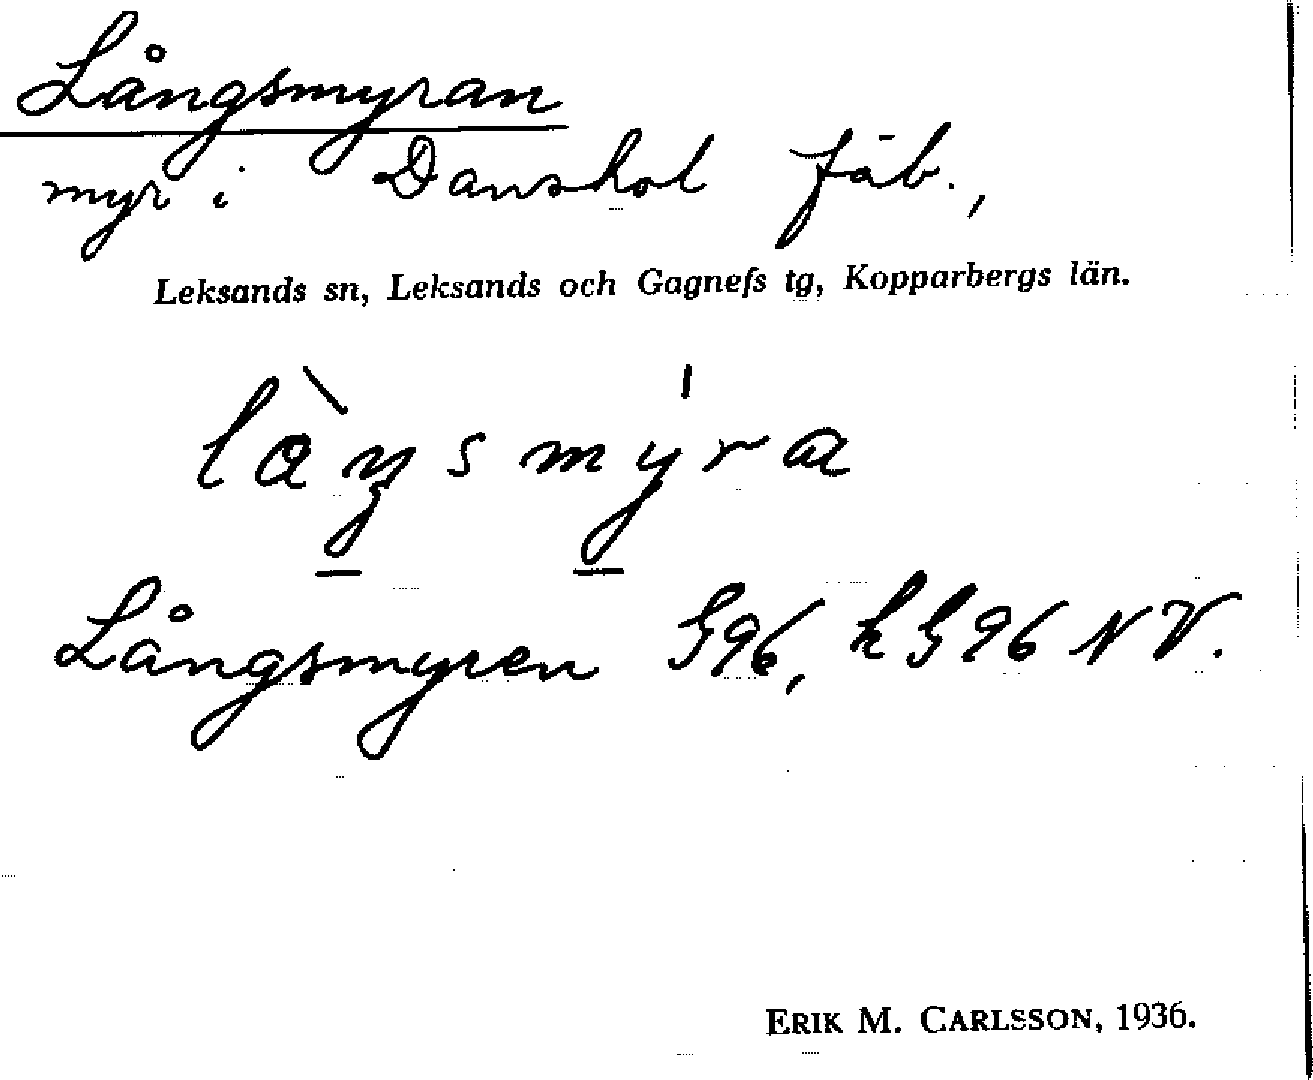 Långsmyran
myr i Danshol fäb.,
Leksands sn, Leksands och Gagnefs tg, Kopparbergs län.
Långsmyren G96, k G96 NV.
ERIK M. CARLSSON, 1936.